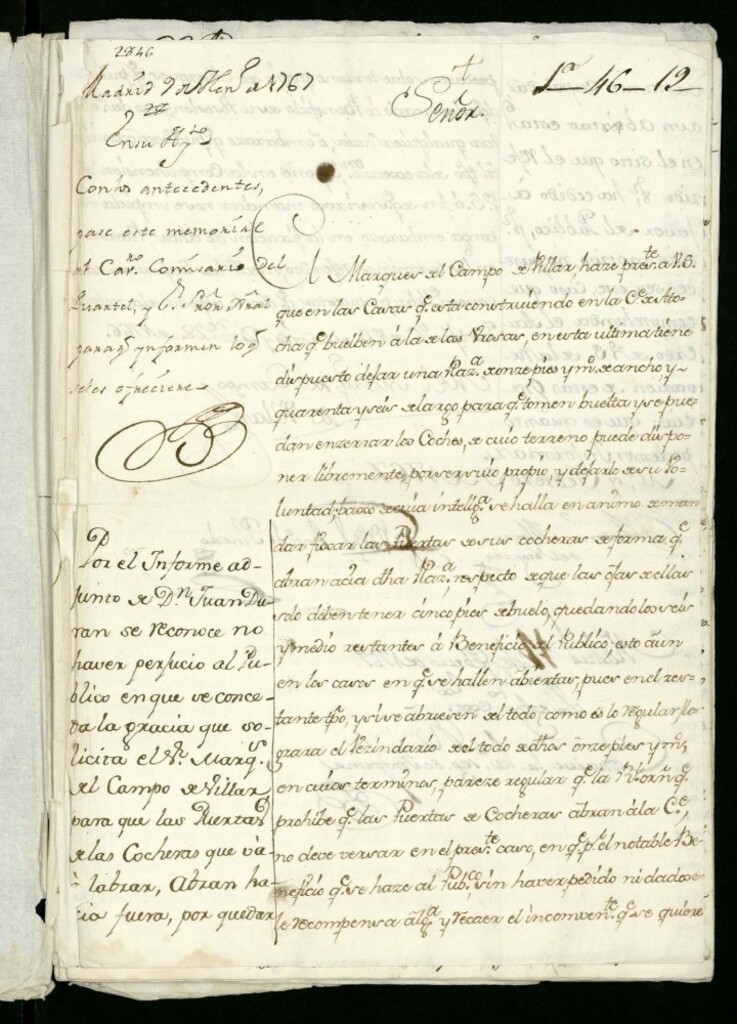 2846
Madrid 9 de Hen.º de 1767
Señor.
1ª-46-19
En su Ay.to
Con los antecedentes,
pase este memorial
al Cav.ro Comisario del
Quartel, y
para q.e ynformen lo q.e
seles ofreciere
El Marques del Campo de Villar, haze pres.te a V.S.
que en las Casas q.e esta construiendo en la C.e de Ato
cha q.e buelben á la de las Urosas, en esta ultima tiene
dispuesto dejar una Plaz.a de onze pies y m.o de ancho, y
quarenta y seis de largo para q.e tomen buelta y se pue
dan enzerrar los Coches, de cuio terreno puede dispo
ner libremente, por ser suio propio, y dejarle de su vo
luntad; baxo de cuia intelig.a se halla en animo de man
dar fixar las Puertas de sus cocheras de forma q.e
abran acia dha Plaz.a, respecto de que las ojas de ellas
solo deben tener cinco pies de buelo, quedando los seis
y medio restantes á Beneficio del Publico; esto aun
en los casos en q.e se hallen abiertas, pues en el res-
tante tpo, y si se abriesen del todo (como es lo regular) lo
grara el Vezindario del todo de dhos onze pies y m.o;
en cuios terminos, pareze regular q.e la R.l orn q.e
prohibe q.e las Puertas de Cocheras abran á la C.e,
no deve versar en el pres.te caso, en q.e p.r el notable Be
neficio q.e se haze al Pub.co, sin haver pedido ni dadose
le recompensa alg.a y recaer el incomven.te q.e se quiere
Por el Informe ad-
junto de D.n Juan Du
ran se reconoce no
haver perjucio al Pu-
blico en que se conce-
da la gracia que so-
licita el S.r Marq.s
del Campo de Villar
para que las Puertas
de las Cocheras que vá
á labrar, Abran ha-
cia fuera, por quedar